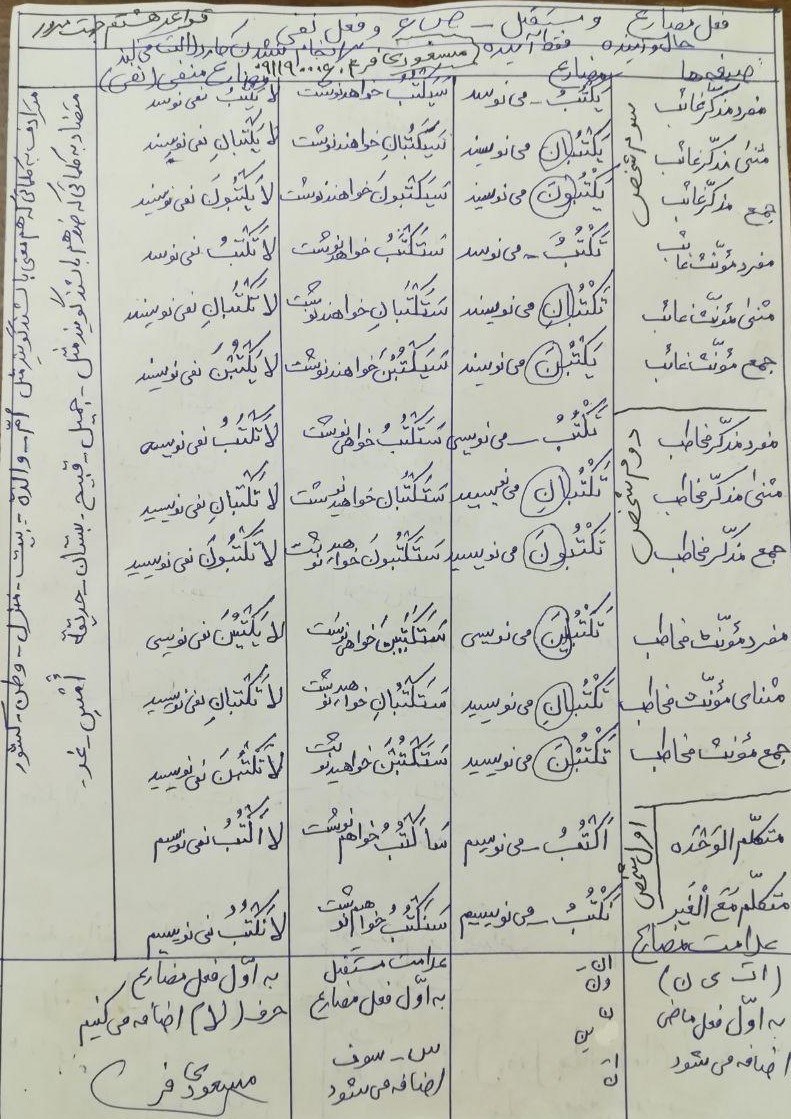 قواعد هشتم جهت مرور
فعل مضارع و مستقبل - ص ۶ و فعل نفی
حال و آینده فقط آینده مسعودی فر سر انجام نشدن کار دلالت می کند
صیغه ها مضارع مضارع منفی (نفی)
مفرد مذکّر غائب یَکْتُبُ - می نویسد سَیَکْتُبُ خواهد نوشت لا یَکْتُبُ نمی نویسد
سوم شخص
مثنی مذکّر غائب یَکْتُبانِ می نویسند سَیَکْتُبانِ خواهند نوشت لا یَکْتُبانِ نمی نویسند
جمع مذکّر غائب یَکْتُبُونَ می نویسند سَیَکْتُبونَ خواهند نوشت لا یَکْتُبُونَ نمی نویسند
مفرد مؤنّث غائب تَکْتُبُ - می نویسد سَتَکْتُبُ خواهد نوشت لا تَکْتُبُ نمی نویسد
مثنی مؤنّث غائب تَکْتُبانِ می نویسند سَتَکْتُبانِ خواهند نوشت لا تَکْتُبانِ نمی نویسند
جمع مؤنّث غائب یَکْتُبْنَ می نویسند سَیَکْتُبْنَ خواهند نوشت لا یَکْتُبْنَ نمی نویسند
مفرد مذکّر مخاطب تَکْتُبُ - می نویسی سَتَکْتُبُ خواهی نوشت لا تَکْتُبُ نمی نویسی
دوم شخص
مثنی مذکّر مخاطب تَکْتُبانِ می نویسید سَتَکْتُبانِ خواهید نوشت لا تَکْتُبانِ نمی نویسید
جمع مذکّر مخاطب تَکْتُبُونَ می نویسید سَتَکْتُبُونَ خواهید نوشت لا تَکْتُبُونَ نمی نویسید
مفرد مؤنّث مخاطب تَکْتُبینَ می نویسی سَتَکْتُبینَ خواهی نوشت لا یَکْتُبینَ نمی نویسی
مثنای مؤنّث مخاطب تَکْتُبانِ می نویسید سَتَکْتُبانِ خواهید نوشت لا تَکْتُبانِ نمی نویسید
جمع مؤنث مخاطب تَکْتُبْنَ می نویسید سَتَکْتُبْنَ خواهید نوشت لا تَکْتُبْنَ نمی نویسید
متکلّم الوَحْدَه اَکْتُبُ - می نویسم سَاَکْتُبُ خواهم نوشت لا اَکْتُبُ نمی نویسم
اول شخص
متکلّم مَعَ الْغَیر نَکْتُبُ - می نویسیم سَنَکْتُبُ خواهیم نوشت لا نَکْتُبُ نمی نویسیم
علامت مضارع
(ا ت ی ن)
به اوّل فعل ماضی
اضافه می شود
ان
ون
ین
ن
علامت مستقبل
به اوّل فعل مضارع
س - سوف
اضافه می شود
به اوّل فعل مضارع
حرف (لا) اضافه می کنیم
مسعودی فر
متضاد به کلماتی که ضد هم باشند گویند مثل - جمیل - قبیح - بستان - حدیقة أمْسِ - غد
مترادف به کلماتی که هم معنی باشند گویند مثل اُمّ - والدة - بیت - منزل - وطن - کشور